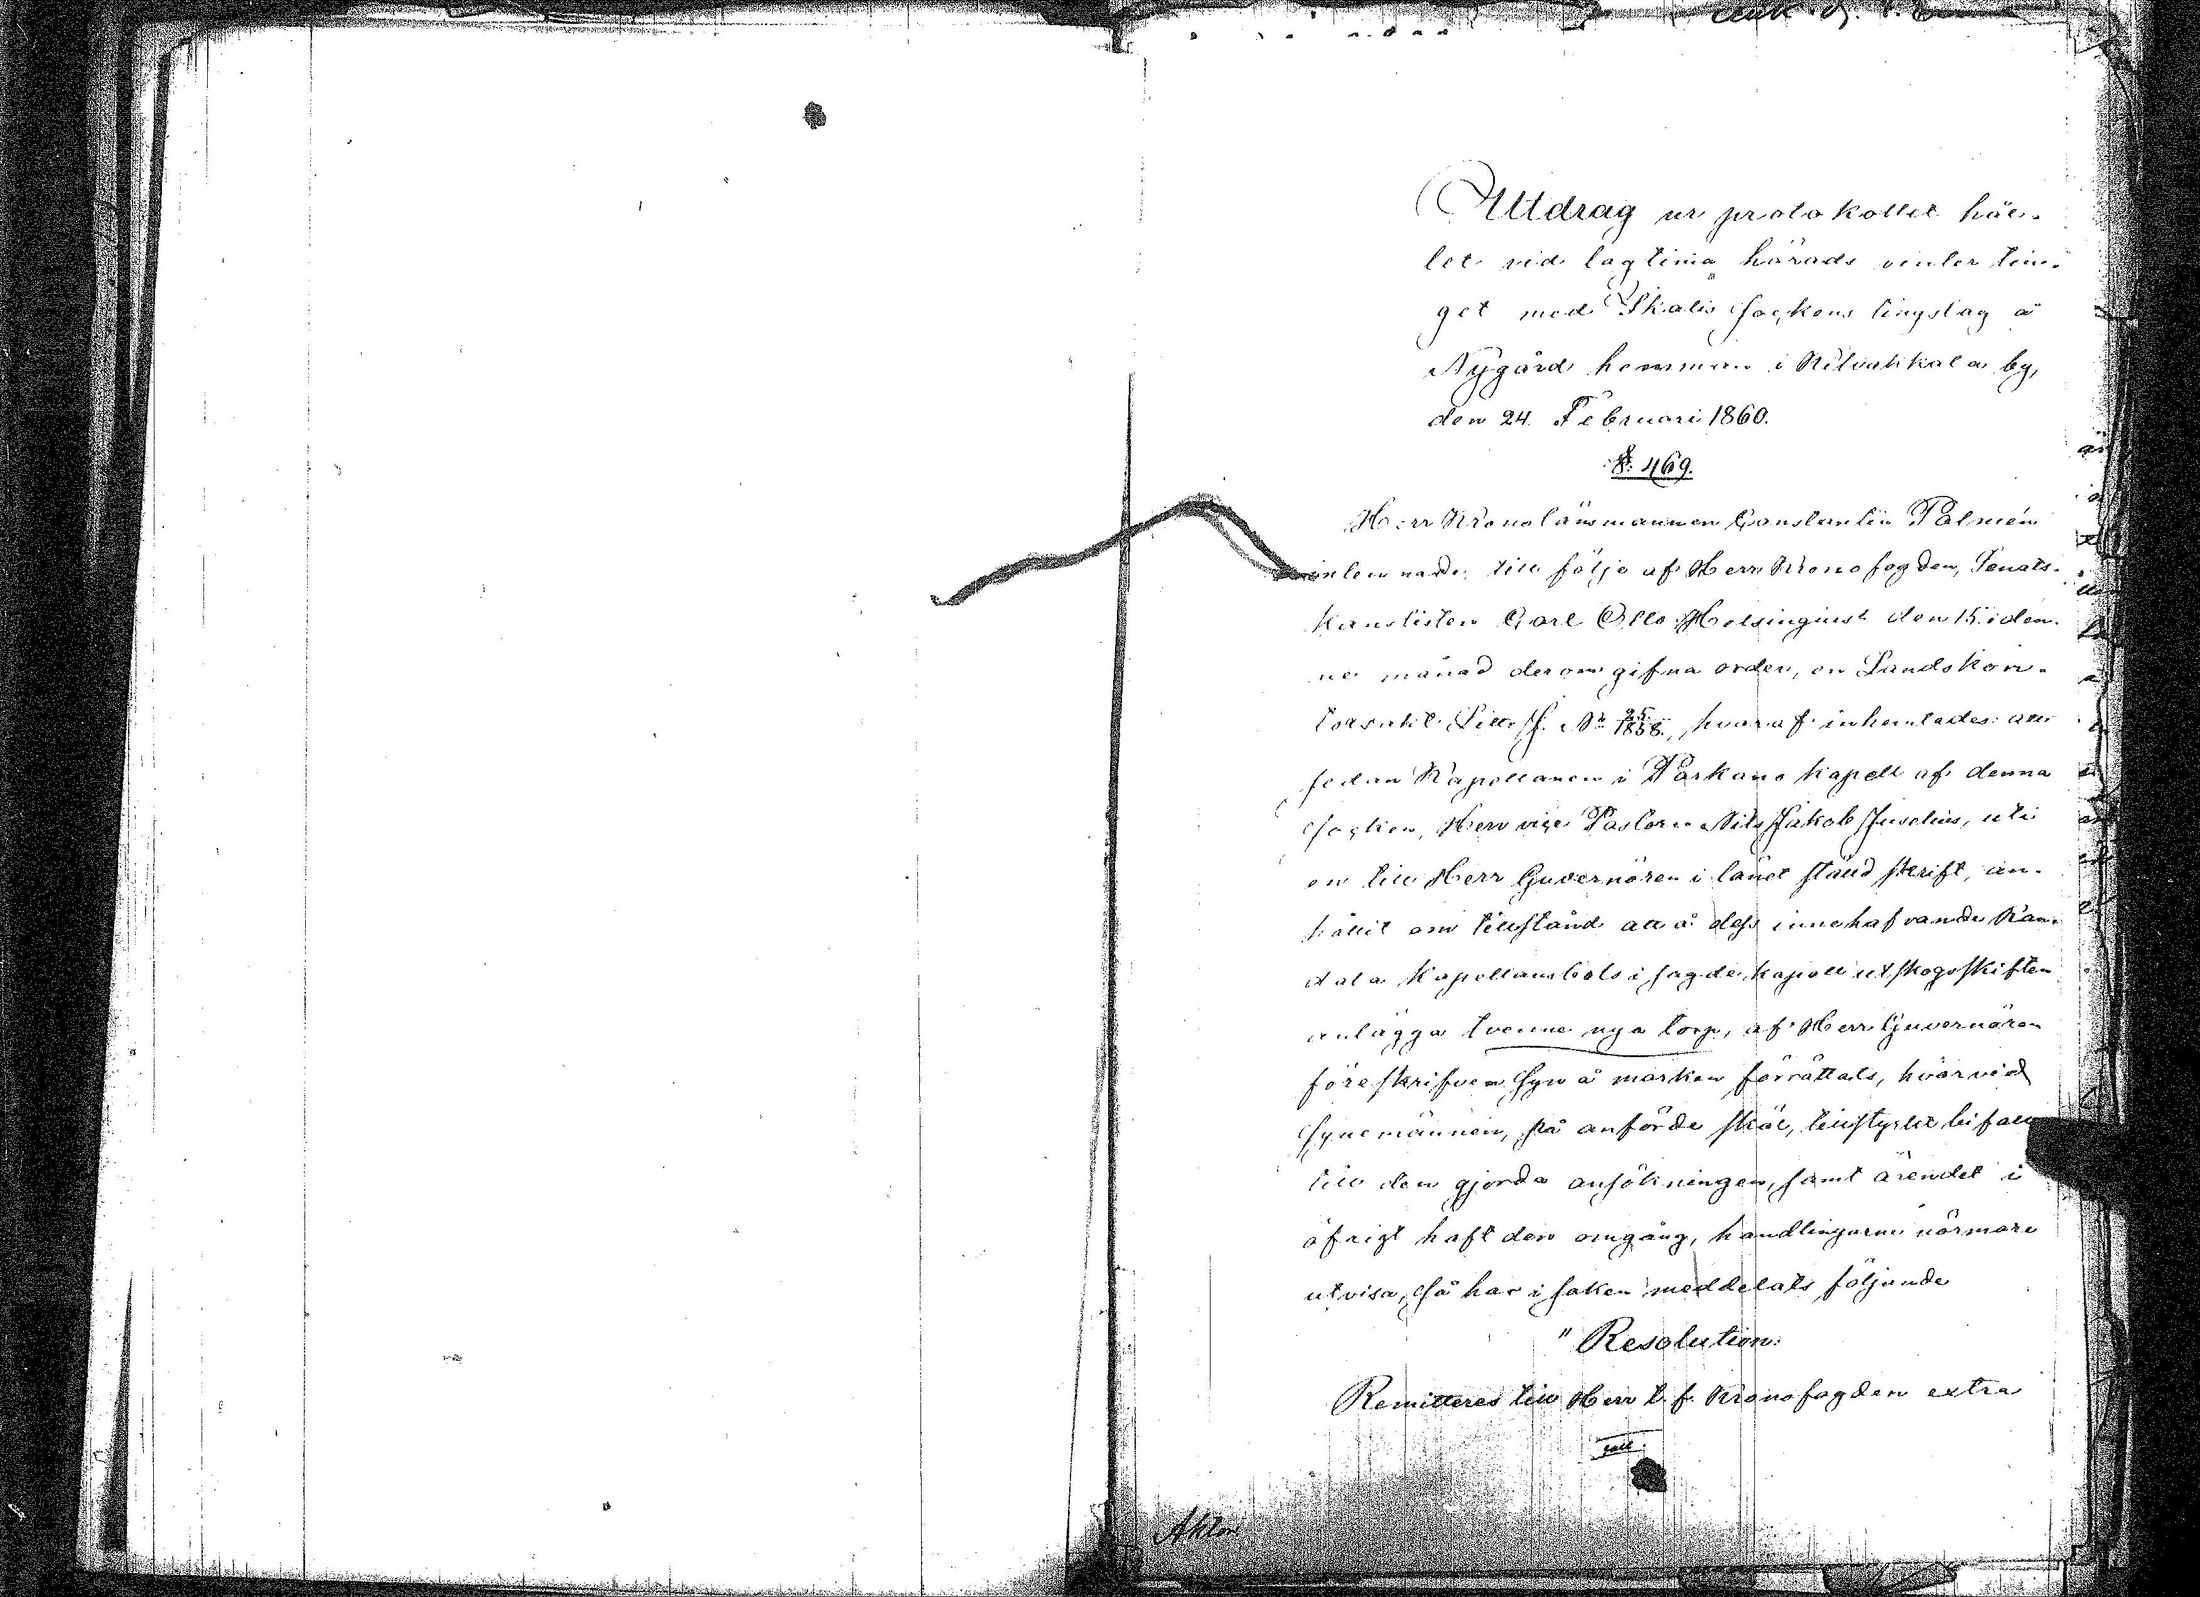 Utdrag ur protokollet hål-
let vid lagtima härads vinter tin-
get med Ikalis Sockens tingslag å
Nygård hemman i Kilvakkala by,
den 24. Februari 1860.
§. 469.
Herr Kronolänsmannen Constantin Palmén
inlemnade, till följe af Herr Kronofogden, Senats-
kanslisten Carl Otto Helsingius den 15. i den-
ne månad derom gifna order, en Landskon-
torsakt Litt. J. N: 25/1858., hvaraf inhemtades: att
sedan Kapellanen i Parkano kapell af denna
socken, Herr vice Pastorn Nils Jakob Juselius, uti
en till Herr Guvernören i länet ställd skrift, an-
hållit om tillstånd att å dess innehafvande Ran-
dala Kapellansbols i sagde kapell utskogsskiften
anlägga tvenne nya torp, af Herr Guvernören
föreskrifven Syn å marken förrättats, hvarvid
Synemännen, på anförde skäl, tillstyrkt bifall
till den gjorda ansökningen, samt ärendet i
öfrigt haft den omgång, handlingarne närmare
utvisa, så har i saken meddelats följande
"Resolution:
Remitteres till Herr t. f. Kronofogden extra
Aktor